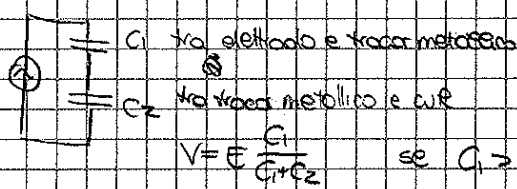 C1 tra elettrodo e trocar metallico
C2 tra trocar metallico e cute
V = E C1/(C1+C2) se C1 >